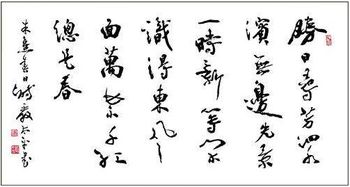 勝日尋芳泗水
濱無邊光景
一時新等閒
識得東風
面萬紫千紅
總是春
朱熹春日詩